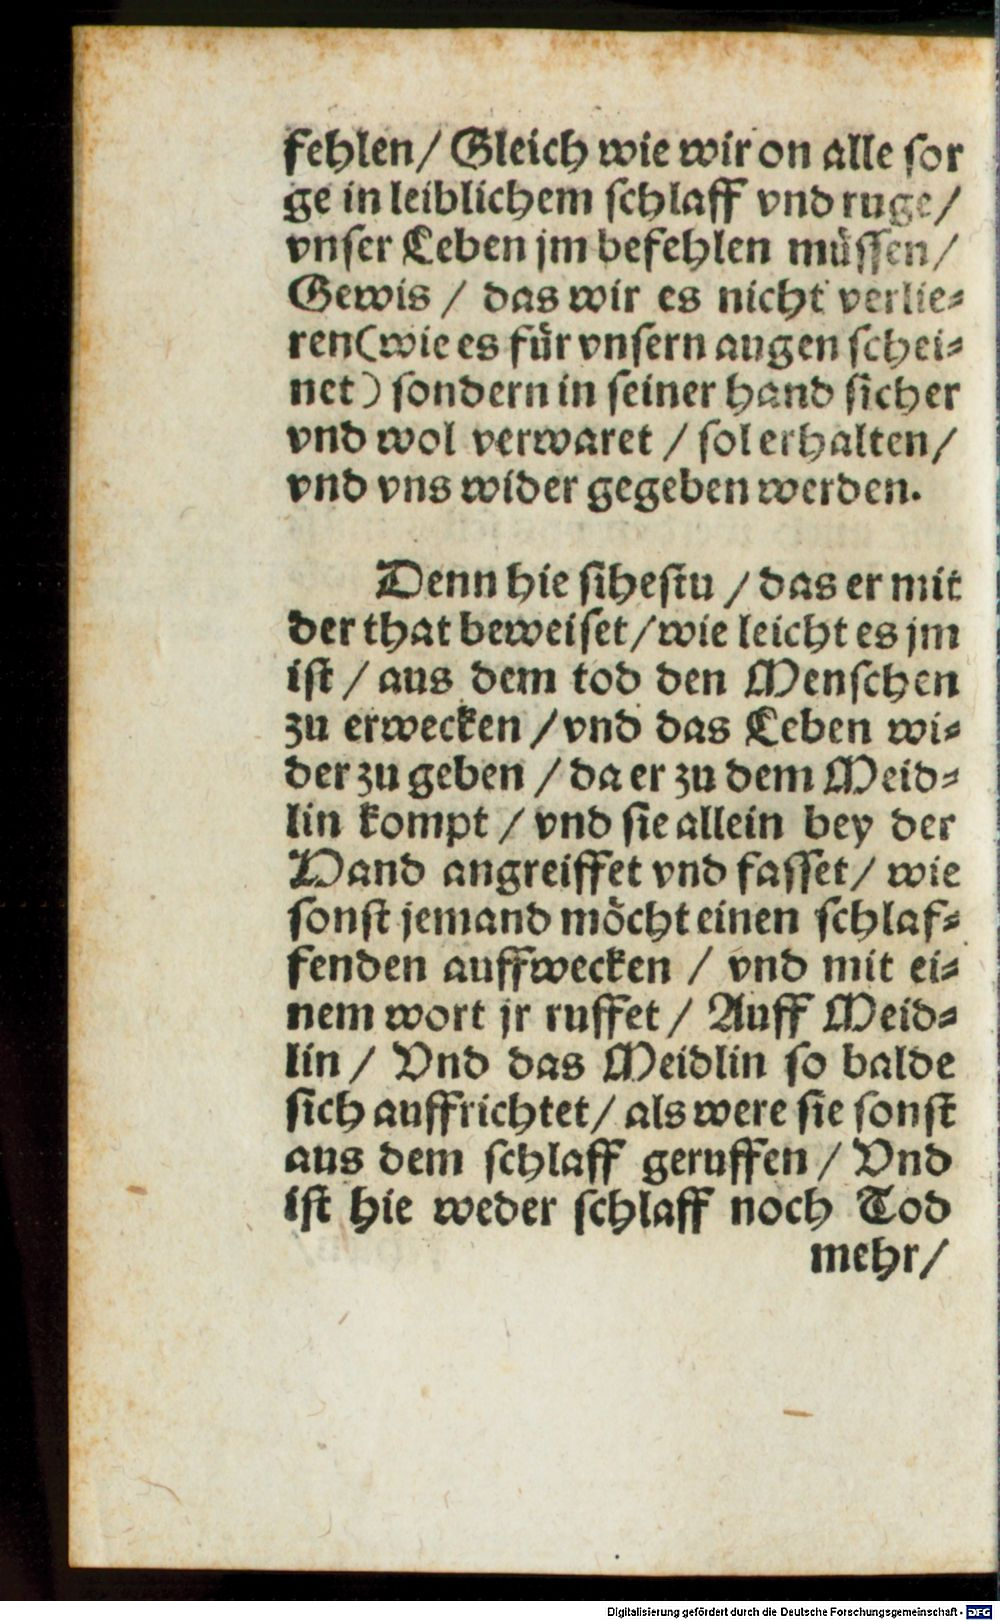 fehlen / Gleich wie wir on alle sor
ge in leiblichem schlaff vnd ruge /
vnser Leben jm befehlen müssen /
Gewis / das wir es nicht verlie-
ren (wie es für vnsern augen schei-
net) sondern in seiner hand sicher
vnd wol verwaret / sol erhalten /
vnd vns wider gegeben werden.
Denn hie sihestu / das er mit
der that beweiset / wie leicht es jm
ist / aus dem tod den Menschen
zu erwecken / vnd das Leben wi-
der zu geben / da er zu dem Meid-
lin kompt / vnd sie allein bey der
Hand angreiffet vnd fasset / wie
sonst jemand möcht einen schlaf-
fenden auffwecken / vnd mit ei-
nem wort jr ruffet / Auff Meid-
lin / Vnd das Meidlin so balde
sich auffrichtet / als were sie sonst
aus dem schlaff geruffen / Vnd
ist hie weder schlaff noch Tod
mehr /
Digitalisierung gefördert durch die Deutsche Forschungsgemeinschaft - DFG